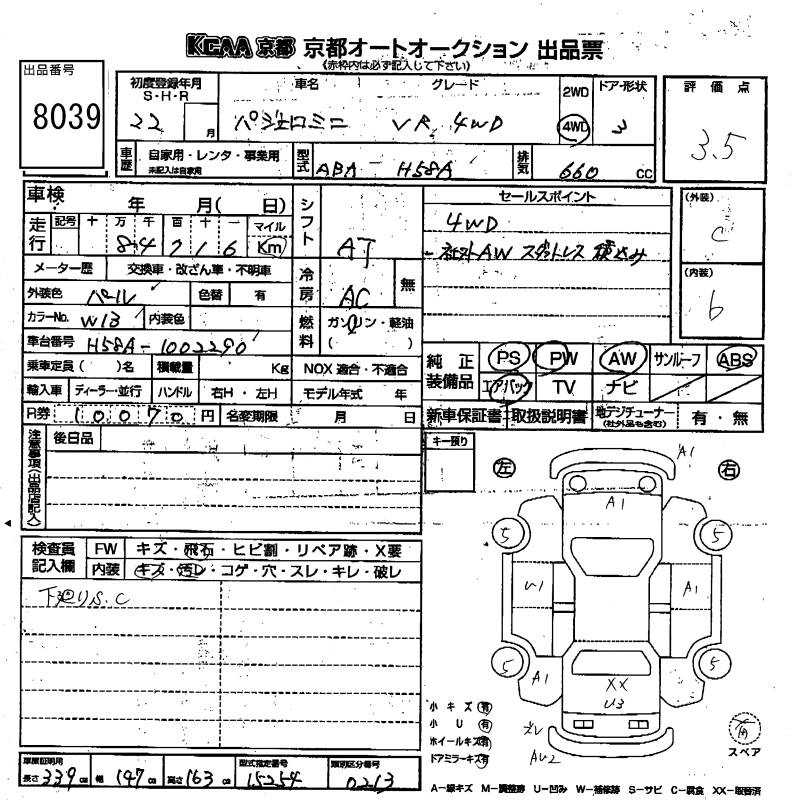 KCAA 京都 京都オートオークション 出品票
(赤枠内は必ず記入して下さい)
出品番号
8039
初度登録年月 S・H・R
22 月
車名
パジェロミニ
グレード
VR 4WD
2WD
4WD
ドア・形状
3
評価点
3.5
車歴
自家用・レンタ・事業用
未記入は自家用
型式
ABA-H58A
排気
660 CC
車検 年 月( 日)
走行
記号 十 万 千 百 十 一 マイル
8 4 7 1 6 Km
メーター歴 交換車・改ざん車・不明車
外装色 パール 色替 有
カラーNo. W13 内装色
車台番号 H58A-1002290
乗車定員( )名 積載量 Kg
輸入車 ディーラー・並行 ハンドル 右H・左H
R券 10070 円 名変期限 月 日
シフト AT
冷房 AC 無
燃料 ガソリン・軽油 ( )
NOX 適合・不適合
モデル年式 年
セールスポイント
4WD
AW スタッドレス 積込み
(外装)
C
(内装)
b
純正装備品
PS PW AW サンルーフ ABS
エアバック TV ナビ
新車保証書 取扱説明書 地デジチューナー (社外品も含む) 有・無
注意事項(出品店記入)
後日品
キー預り
1
左
右
A1
A1
5
5
U1
A1
5
5
A1
XX
U3
AU2
スペア
検査員記入欄
FW キズ・飛石・ヒビ割・リペア跡・X要
内装 キズ・汚レ・コゲ・穴・スレ・キレ・破レ
下廻りS.C
小キズ 有
小U 有
ホイールキズ 有
ドアミラーキズ 有
車庫証明用
長さ 339 cm 幅 147 cm 高さ 163 cm
型式指定番号
15254
類別区分番号
0213
A－線キズ M－調整跡 U－凹み W－補修跡 S－サビ C－腐食 XX－取替済